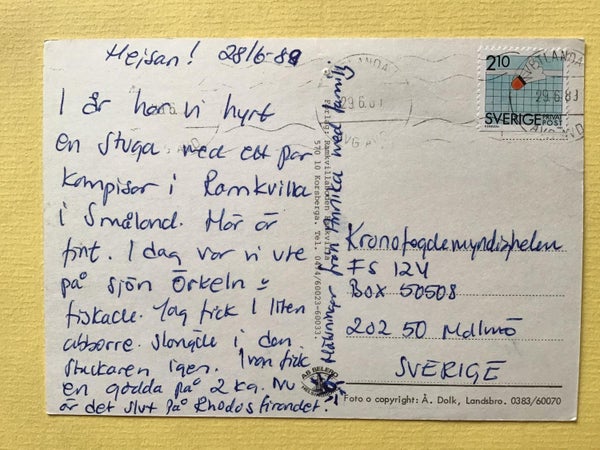 Hejsan! 28/6-89
I år har vi hyrt
en stuga med ett par
kompisar i Ramkvilla
i Småland. Här är
fint. I dag var vi ute
på sjön Örkeln o
fiskade. Jag fick 1 liten
abborre. slängde i den
stackaren igen. Ivan fick
en gädda på 2 kg. Nu
är det slut på Rhodosfirandet.
Hälsningar från Annika med familj.
Förlag: Ramkvillaboden Ramkvilla
570 10 Korsberga. Tel. 0474/60023-60033.
2.10
SVERIGE PRIVAT
POST
29.6.89
29.6.89
Kronofogdemyndigheten
FS 124
BOX 50508
202 50 Malmö
SVERIGE
Foto o copyright: Å. Dolk, Landsbro. 0383/60070